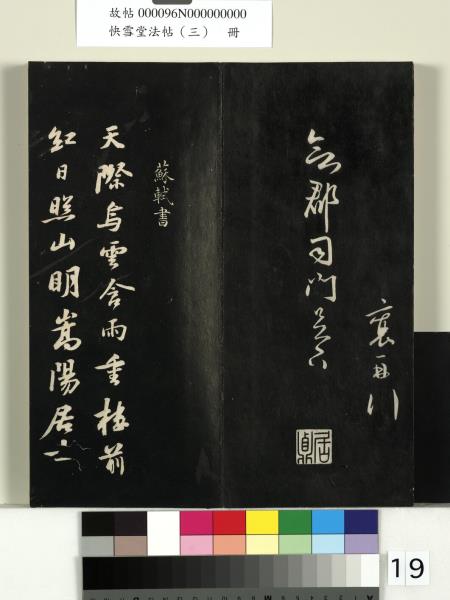 故帖 000096N000000000
快雪堂法帖（三） 冊
襄再拜
郡司門足下
蘇軾書
天際烏雲含雨重樓前
紅日照山明嵩陽居士
19